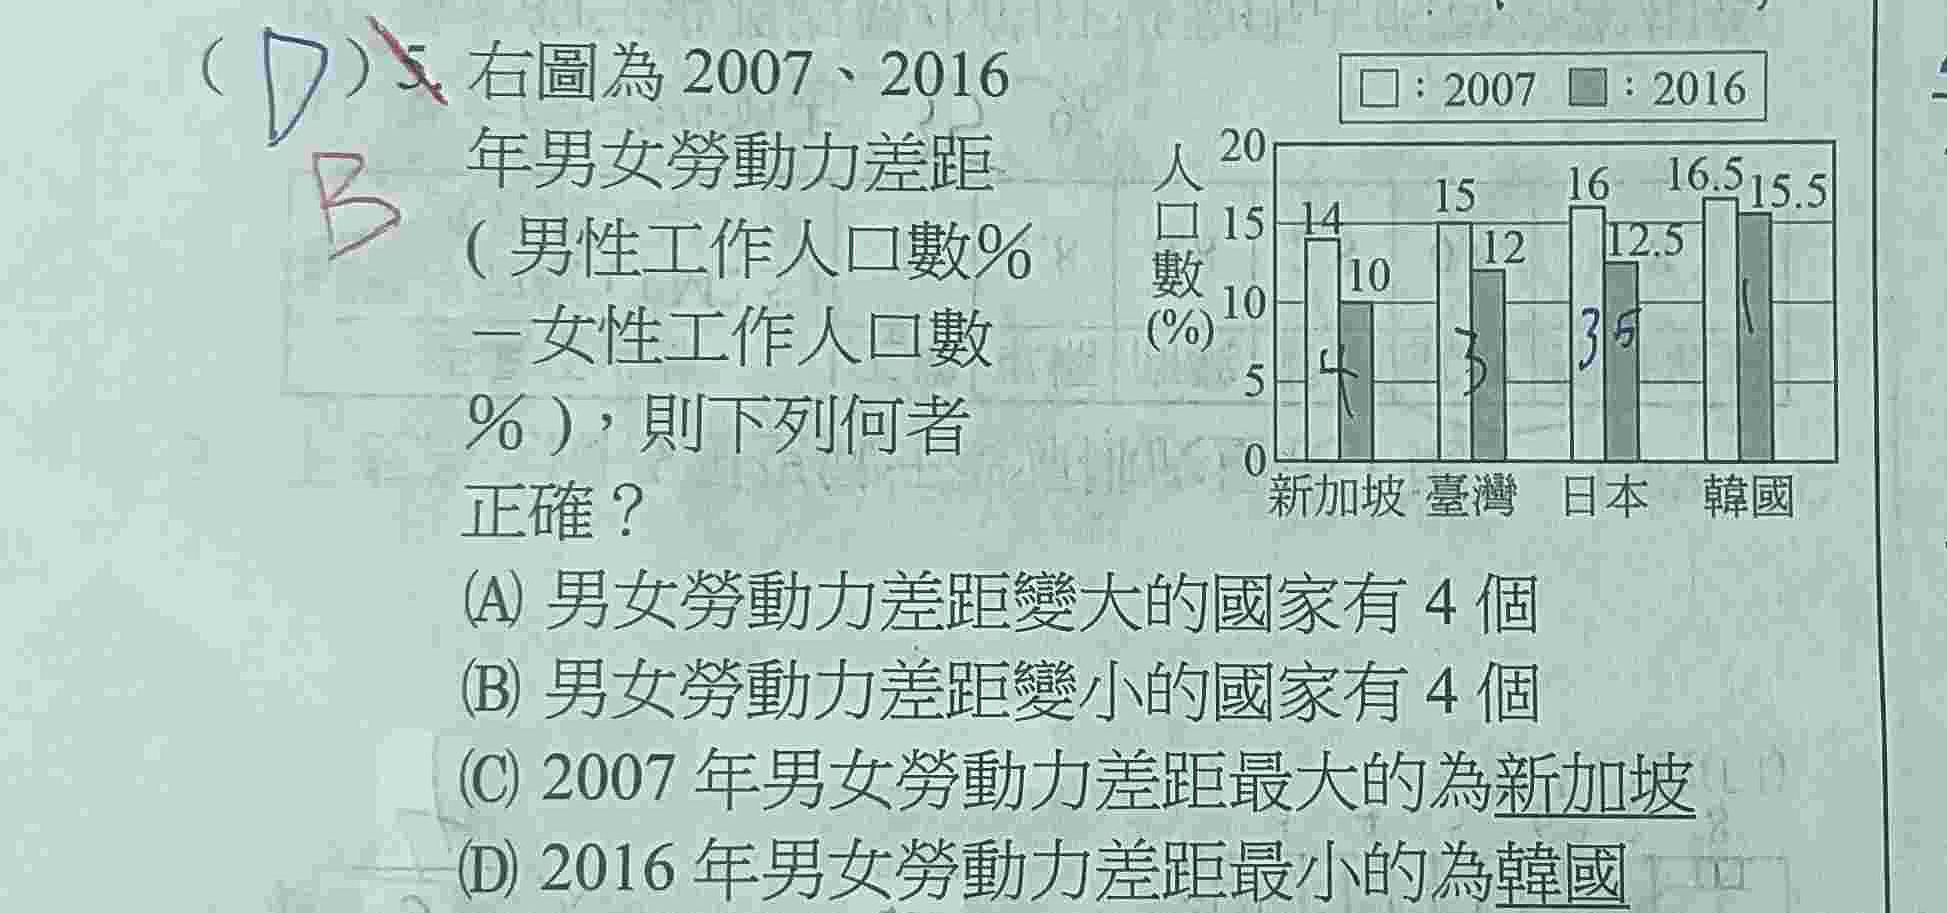 ( D ) 5. 右圖為 2007、2016
年男女勞動力差距
( 男性工作人口數%
－女性工作人口數
% )，則下列何者
正確？
B
□：2007 ■：2016
人口數(%)
20
15
10
5
0
14
10
15
12
16
12.5
16.5
15.5
4
3
3.5
1
新加坡 臺灣 日本 韓國
(A) 男女勞動力差距變大的國家有 4 個
(B) 男女勞動力差距變小的國家有 4 個
(C) 2007 年男女勞動力差距最大的為新加坡
(D) 2016 年男女勞動力差距最小的為韓國